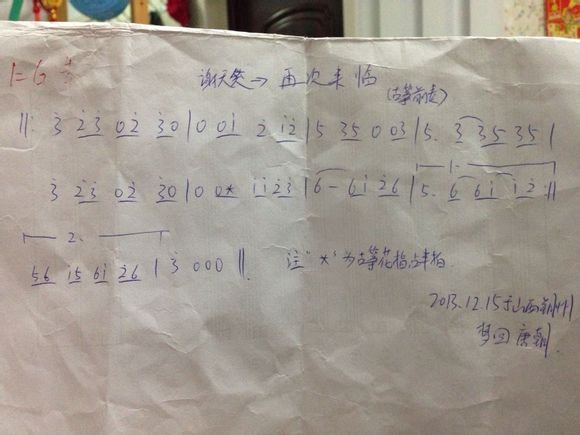 1=G 4/4 谢天笑→再次来临
(古筝前奏)
‖: 3̇ 2̇3̇ 02̇ 3̇0 | 0 01̇ 2̇ 1̇2̇ | 5 35 0 03 | 5. 3 35 35 |
3̇ 2̇3̇ 02̇ 3̇0 | 0 0* 1̇1̇2̇3̇ | 6 - 61̇ 2̇6 | 5. 6 61̇ 1̇2̇ :‖
1.
2.
56 1̇5 61̇ 2̇6 | 3̇ 0 0 0 ‖ 注"*"为古筝花指占半拍
2013.12.15于山西朔州
梦回唐朝